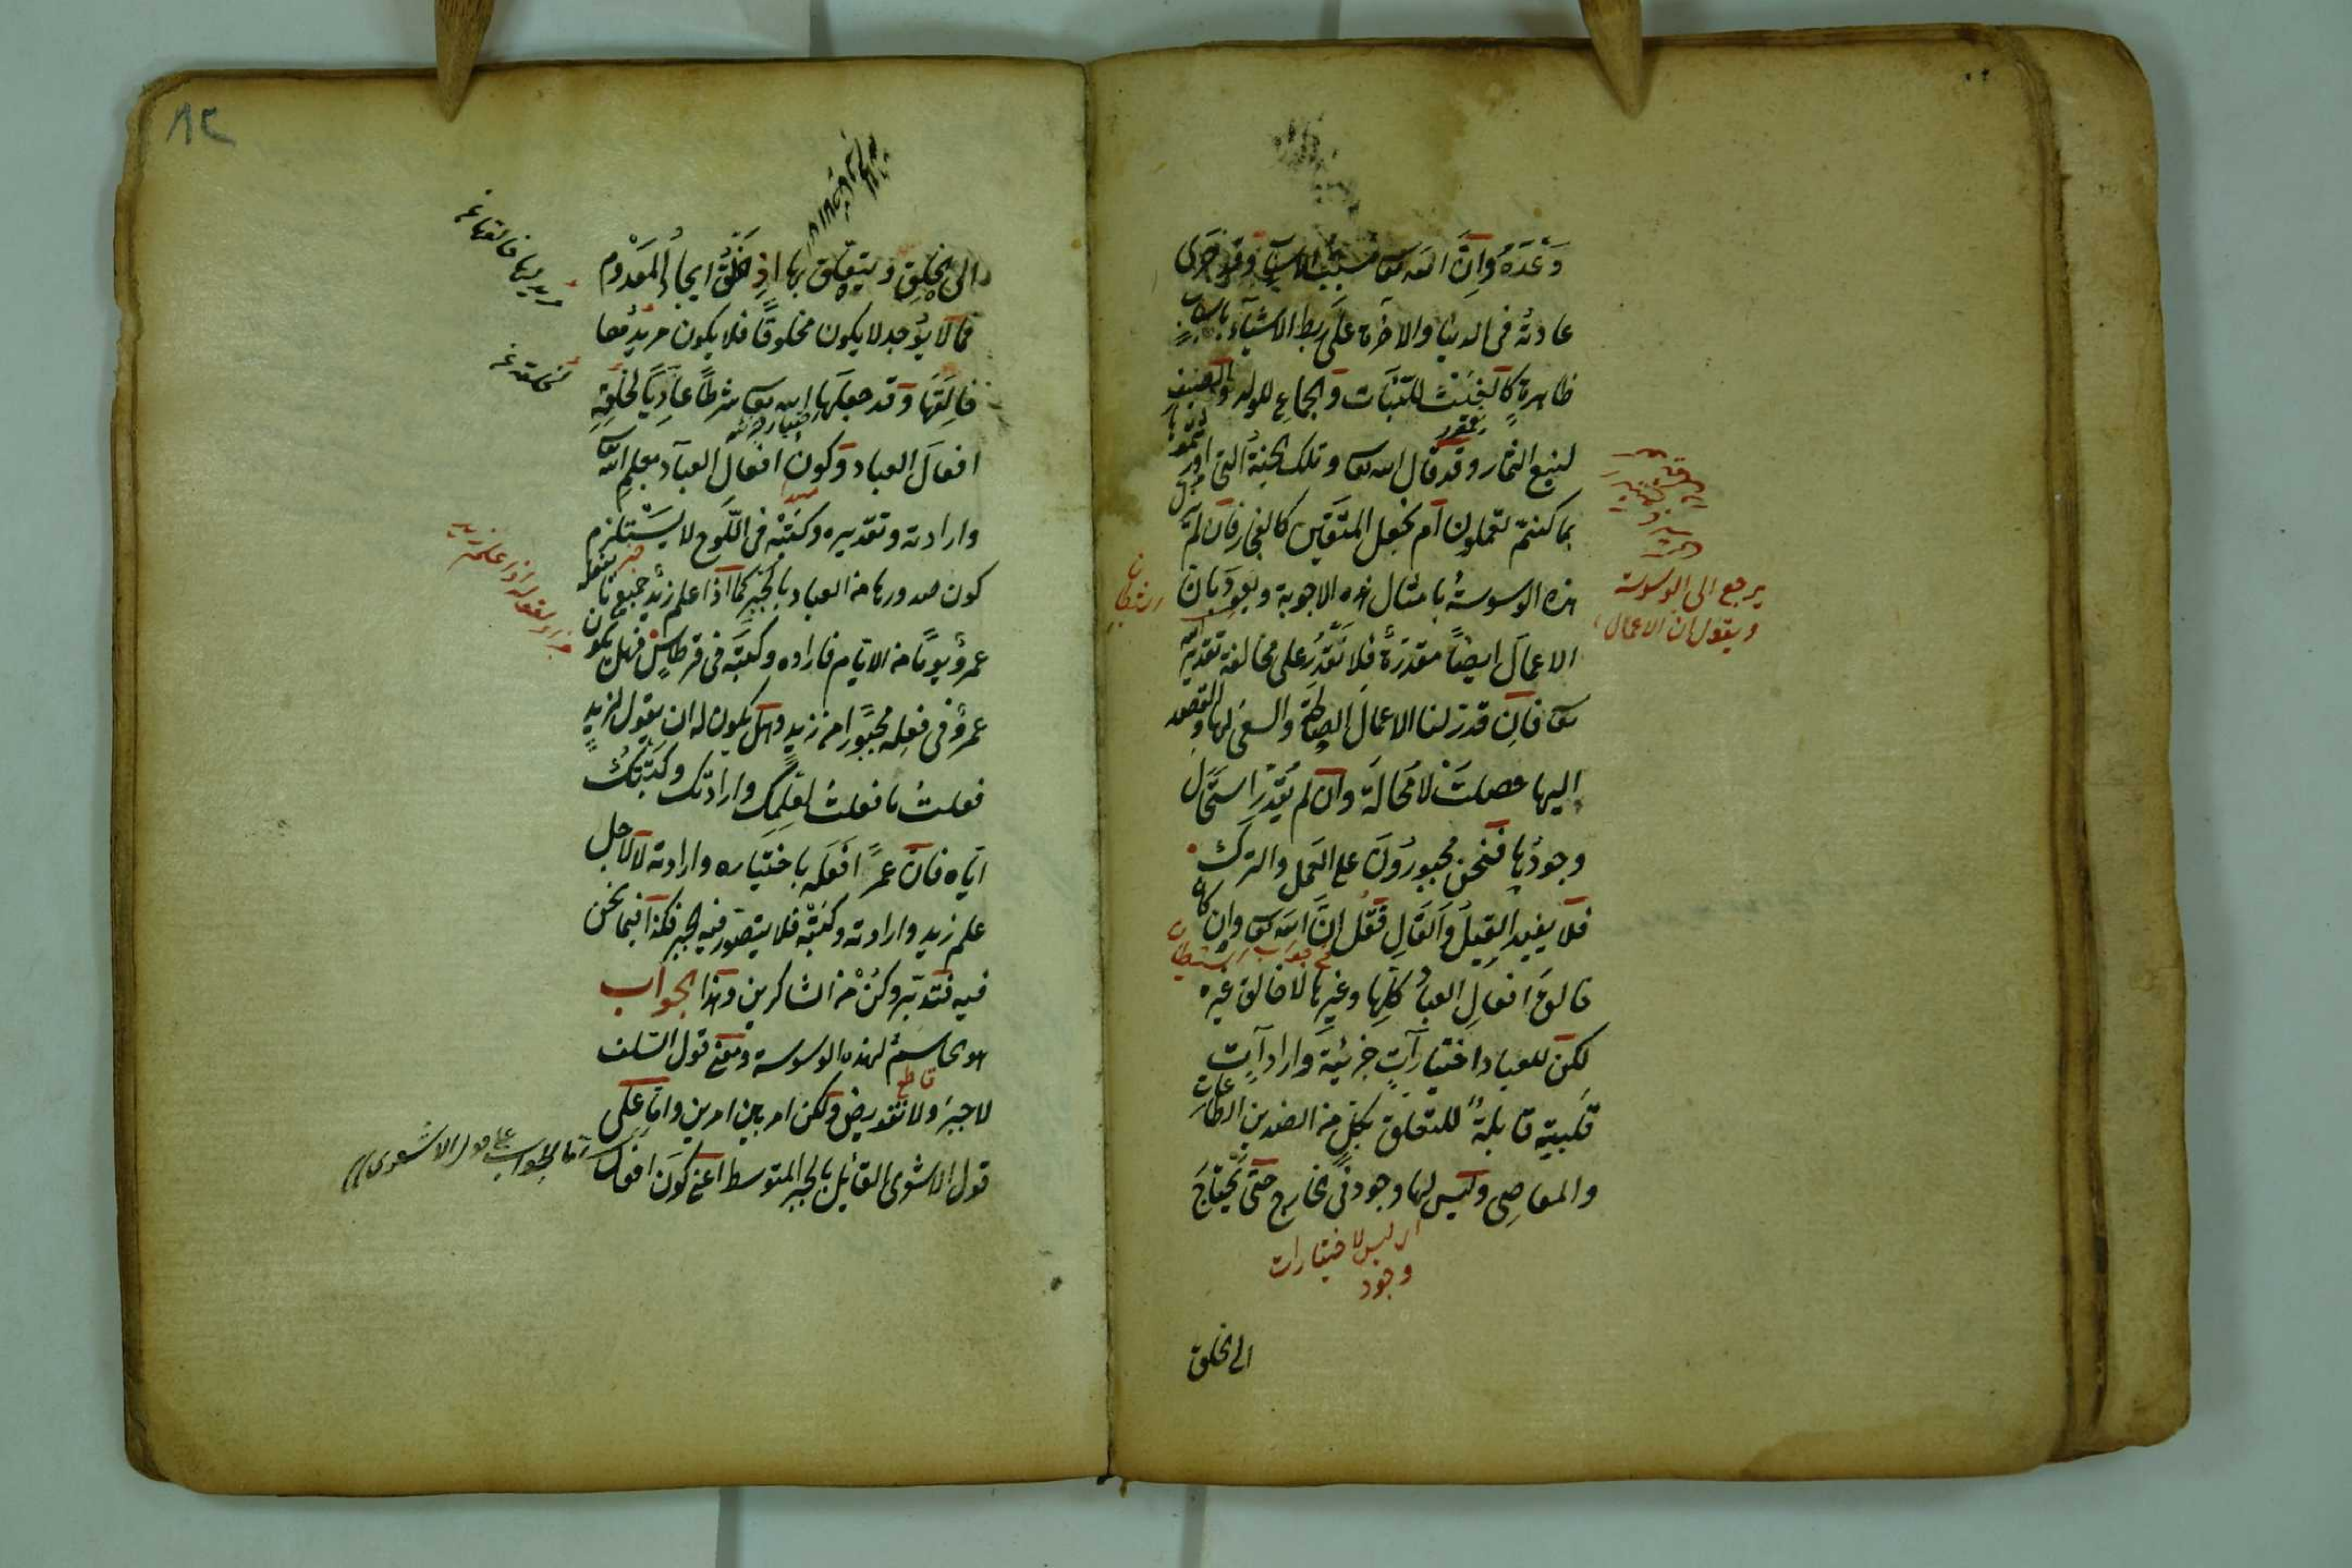 وَعْدَهُ وَاِنَّ الله تعا مسبب الاسباب وقد جرى
عادته فى الدنيا والاخرة على ربط الاشياء باسباب
ظاهرة كالغيث للنبات والجماع للولد والصيف
لينع الثمار وقد قال الله تعا وتلك الجنة التى اورثتموها
بما كنتم تعملون ام نجعل المتقين كالفجار فان لم يزل
هذه الوسوسة بامثال هذه الاجوبة ويعود بان
الاعمال ايضا مقدرة فلا نقدر على مخالفة تقدير الله
تعا فان قدر لنا الاعمال الصالحة والسعى لها والقصد
اليها حصلت لا محالة وان لم يقدر استحال
وجودها فنحن مجبورون على العمل والترك
فلا يفيد القيل والقال فقل ان الله تعا وان كان
خالق افعال العباد كلها وغيرها لا خالق غيره
لكن للعباد اختيارات جزئية وارادات
قلبية قابلة للتعلق بكل من الضدين الطاعات
والمعاصى وليس لها وجود فى خارج حتى يحتاج
يرجع الى الوسوسة
ويقول ان الاعمال
الشيطان
جواب الشيطان
اى ليس لاختيارات
وجود
الى الخلق
١٢
الى الخلق ويتعلق بها اذ الخلق ايجاد المعدوم
فما لا يوجد لا يكون مخلوقا فلا يكون مريدها
خالقها وقد جعلها الله تعا شرطا عاديا لخلقه
افعال العباد وكون افعال العباد بعلم الله تعا
وارادته وتقديره وكتبه فى اللوح لا يستلزم
كون صدورها من العباد بالجبر كما اذا علم زيد جميع ما يفعله
عمرو يوما من الايام فاراده وكتبه فى قرطاس فهل يكون
عمرو فى فعله مجبورا من زيد وهل يكون له ان يقول لزيد
فعلت ما فعلت لعلمك وارادتك وكتبتك
اياه فان عمرًا فعله باختياره وارادته لا لاجل
علم زيد وارادته وكتبه فلا يتصور فيه الجبر فكذا فيما نحن
فيه فتدبر وكن من الشاكرين وهذا الجواب
هو الحاسم لهذه الوسوسة ومعنى قول السلف
قاطع
لا جبر ولا تفويض ولكن امر بين امرين واما على
قول الاشعرى القائل بالجبر المتوسط اعنى كون افعال
مريدها خالقها
لخلقه
اما الجواب على قول الاشعرى